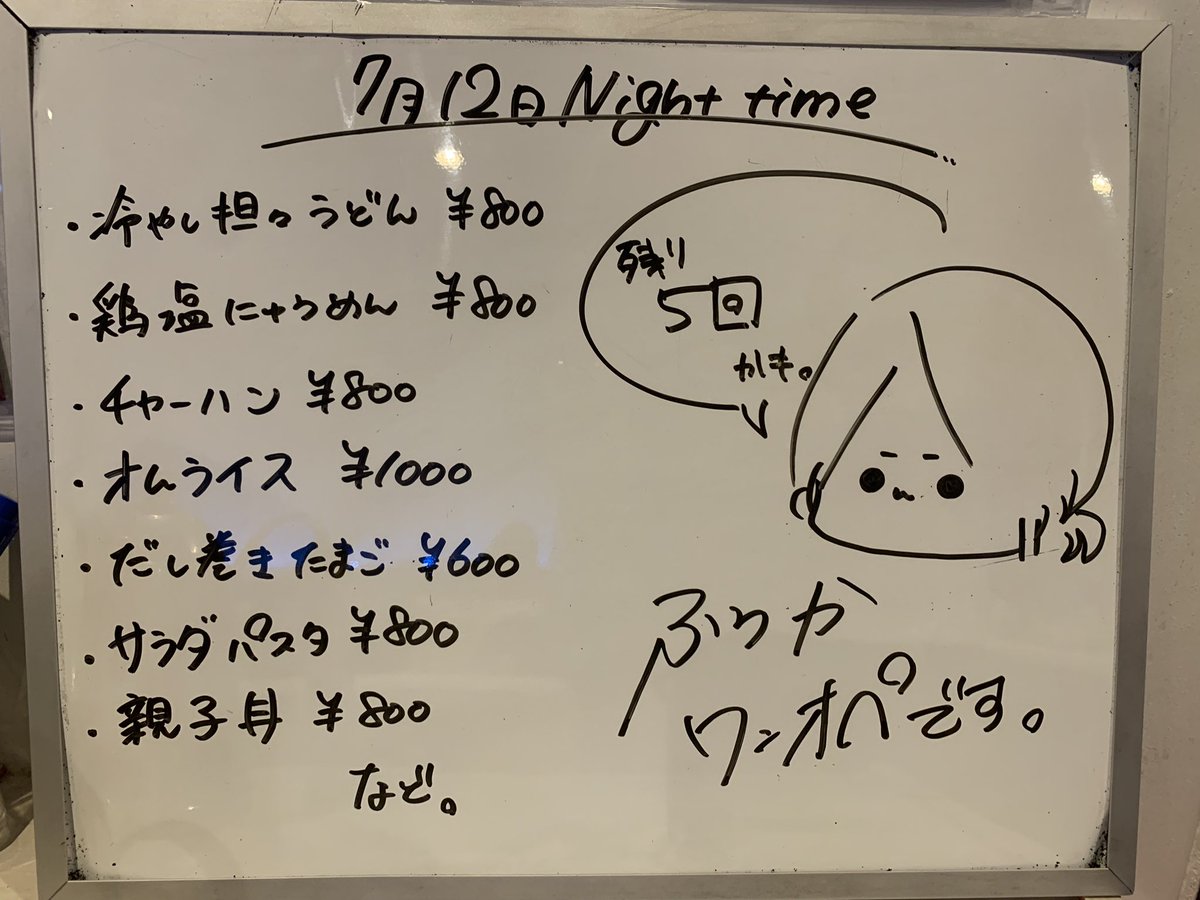 7月12日 Night time
・冷やし担々うどん ¥800
・鶏塩にゅうめん ¥800
・チャーハン ¥800
・オムライス ¥1000
・だし巻きたまご ¥600
・サラダパスタ ¥800
・親子丼 ¥800
など。
残り
5回
かも。
ふうか
ワンオペです。